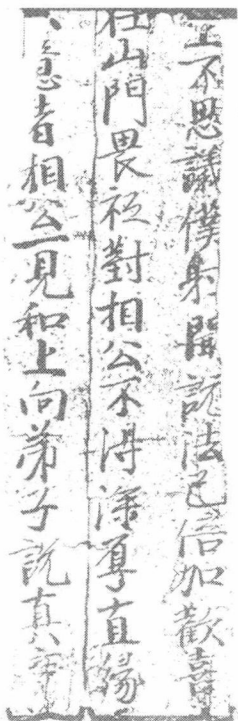 上不思議僕射聞說法已倍加歡喜
在山門畏祗對相公不得深直緣
意者相公一見和上向弟子說真